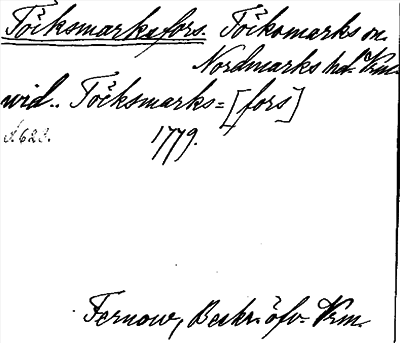 Töcksmarksfors. Töcksmarks sn.
Nordmarks hd. Vrm.
wid.. Töcksmarks=[fors]
s. 623. 1779.
Fernow, Beskr. öfv. Vrm.